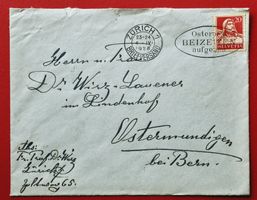 ZÜRICH 7
23-24
BRIEFVERSAND
Osterp
BEIZE
aufge
20
HELVETIA
Herrn u. Frau
Dr Wirz-Lavener
im Lindenhof
Ostermundigen
bei Bern.
Abs:
Fr. Prof. Dr Wirz
Zürich 7
65.